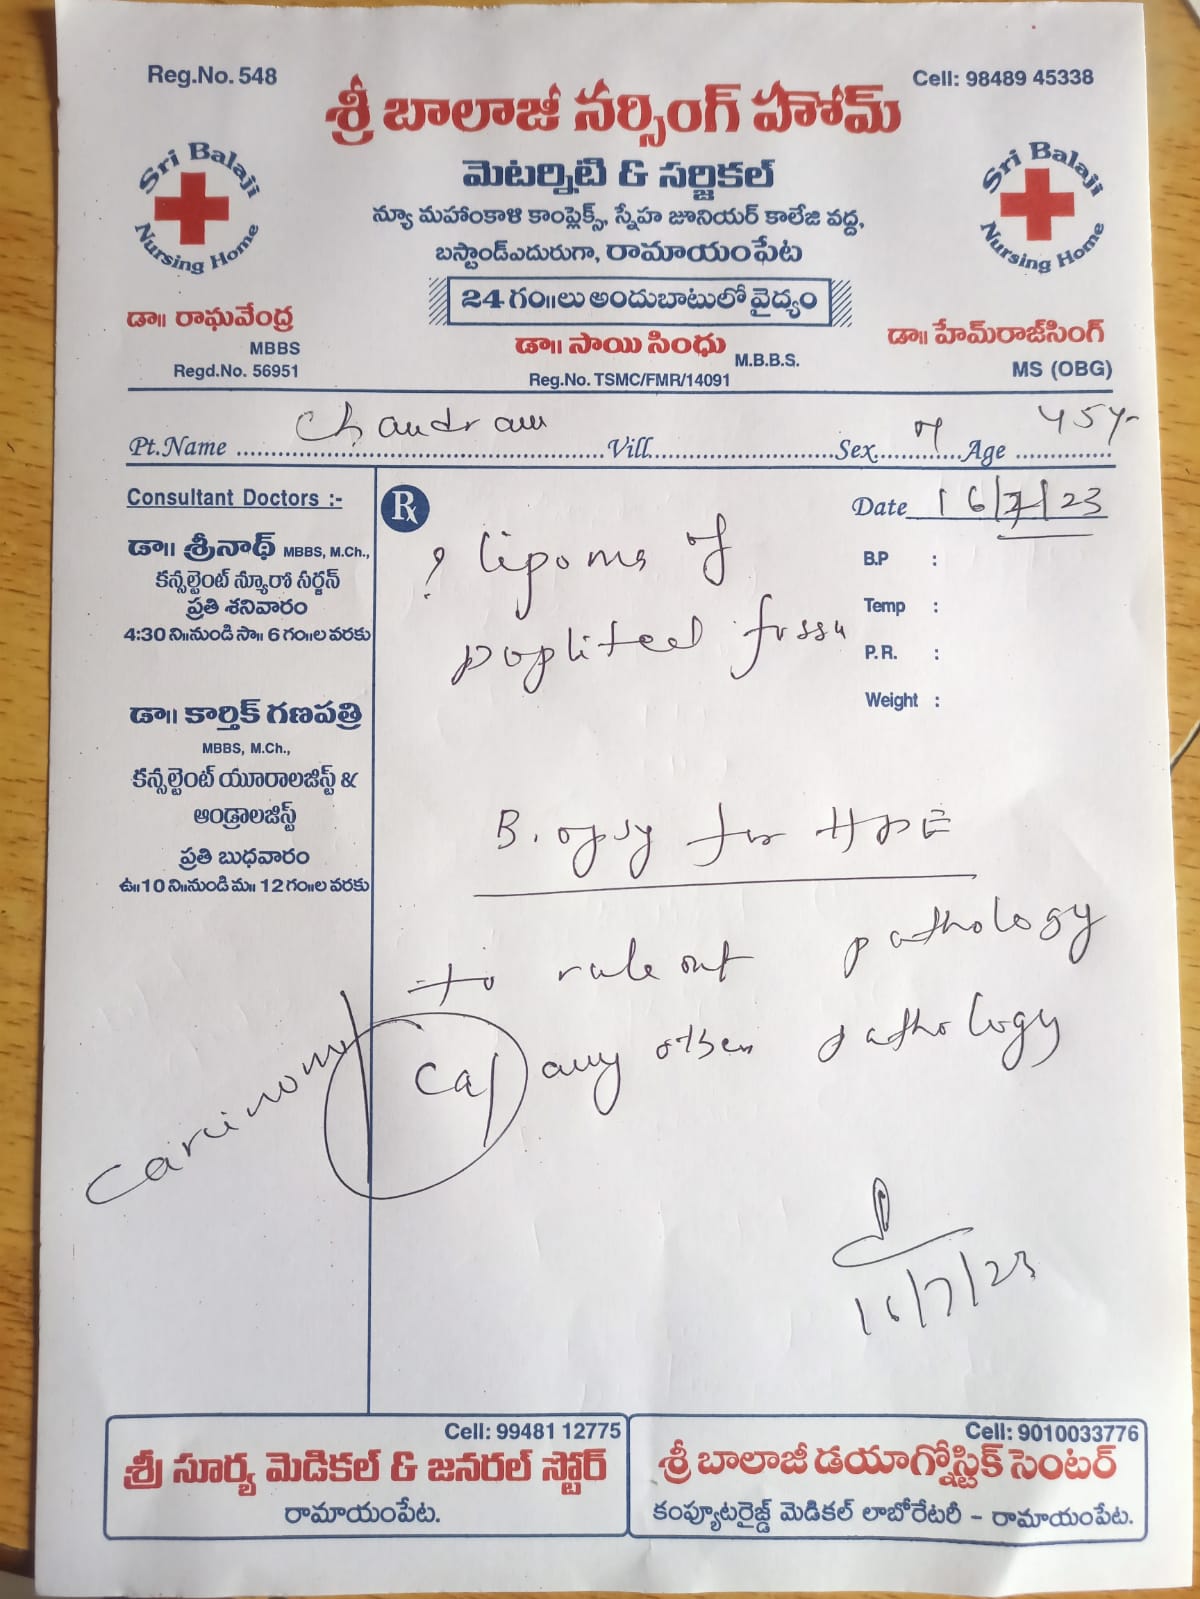 Reg.No. 548
Cell: 98489 45338
శ్రీ బాలాజీ నర్సింగ్ హోమ్
Sri Balaji Nursing Home
Sri Balaji Nursing Home
మెటర్నిటి & సర్జికల్
న్యూ మహాంకాళి కాంప్లెక్స్, స్నేహ జూనియర్ కాలేజి వద్ద,
బస్టాండ్ఎదురుగా, రామాయంపేట
24 గం॥లు అందుబాటులో వైద్యం
డా॥ రాఘవేంద్ర
MBBS
Regd.No. 56951
డా॥ సాయి సింధు M.B.B.S.
Reg.No. TSMC/FMR/14091
డా॥ హేమ్‌రాజ్‌సింగ్
MS (OBG)
Pt.Name Chandram Vill. Sex Age 45y
Consultant Doctors :-
డా॥ శ్రీనాథ్ MBBS, M.Ch.,
కన్సల్టెంట్ న్యూరో సర్జన్
ప్రతి శనివారం
4:30 ని॥నుండి సా॥ 6 గం॥ల వరకు
డా॥ కార్తిక్ గణపత్రి
MBBS, M.Ch.,
కన్సల్టెంట్ యూరాలజిస్ట్ &
ఆండ్రాలజిస్ట్
ప్రతి బుధవారం
ఉ॥10 ని॥నుండి మ॥ 12 గం॥ల వరకు
Rx
Date 16/7/23
B.P :
Temp :
P.R. :
Weight :
? lipoma of
popliteal fossa
Biopsy for HPE
to rule out pathology
Ca/ any other pathology
Carcinoma
16/7/23
Cell: 99481 12775
శ్రీ సూర్య మెడికల్ & జనరల్ స్టోర్
రామాయంపేట.
Cell: 9010033776
శ్రీ బాలాజీ డయాగ్నోస్టిక్ సెంటర్
కంప్యూటరైజ్డ్ మెడికల్ లాబోరేటరీ – రామాయంపేట.